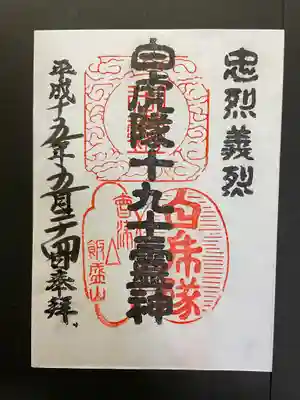 忠烈義烈
白虎隊十九士霊神
平成十五年五月二十四日奉拝
白虎隊
會津
飯盛山